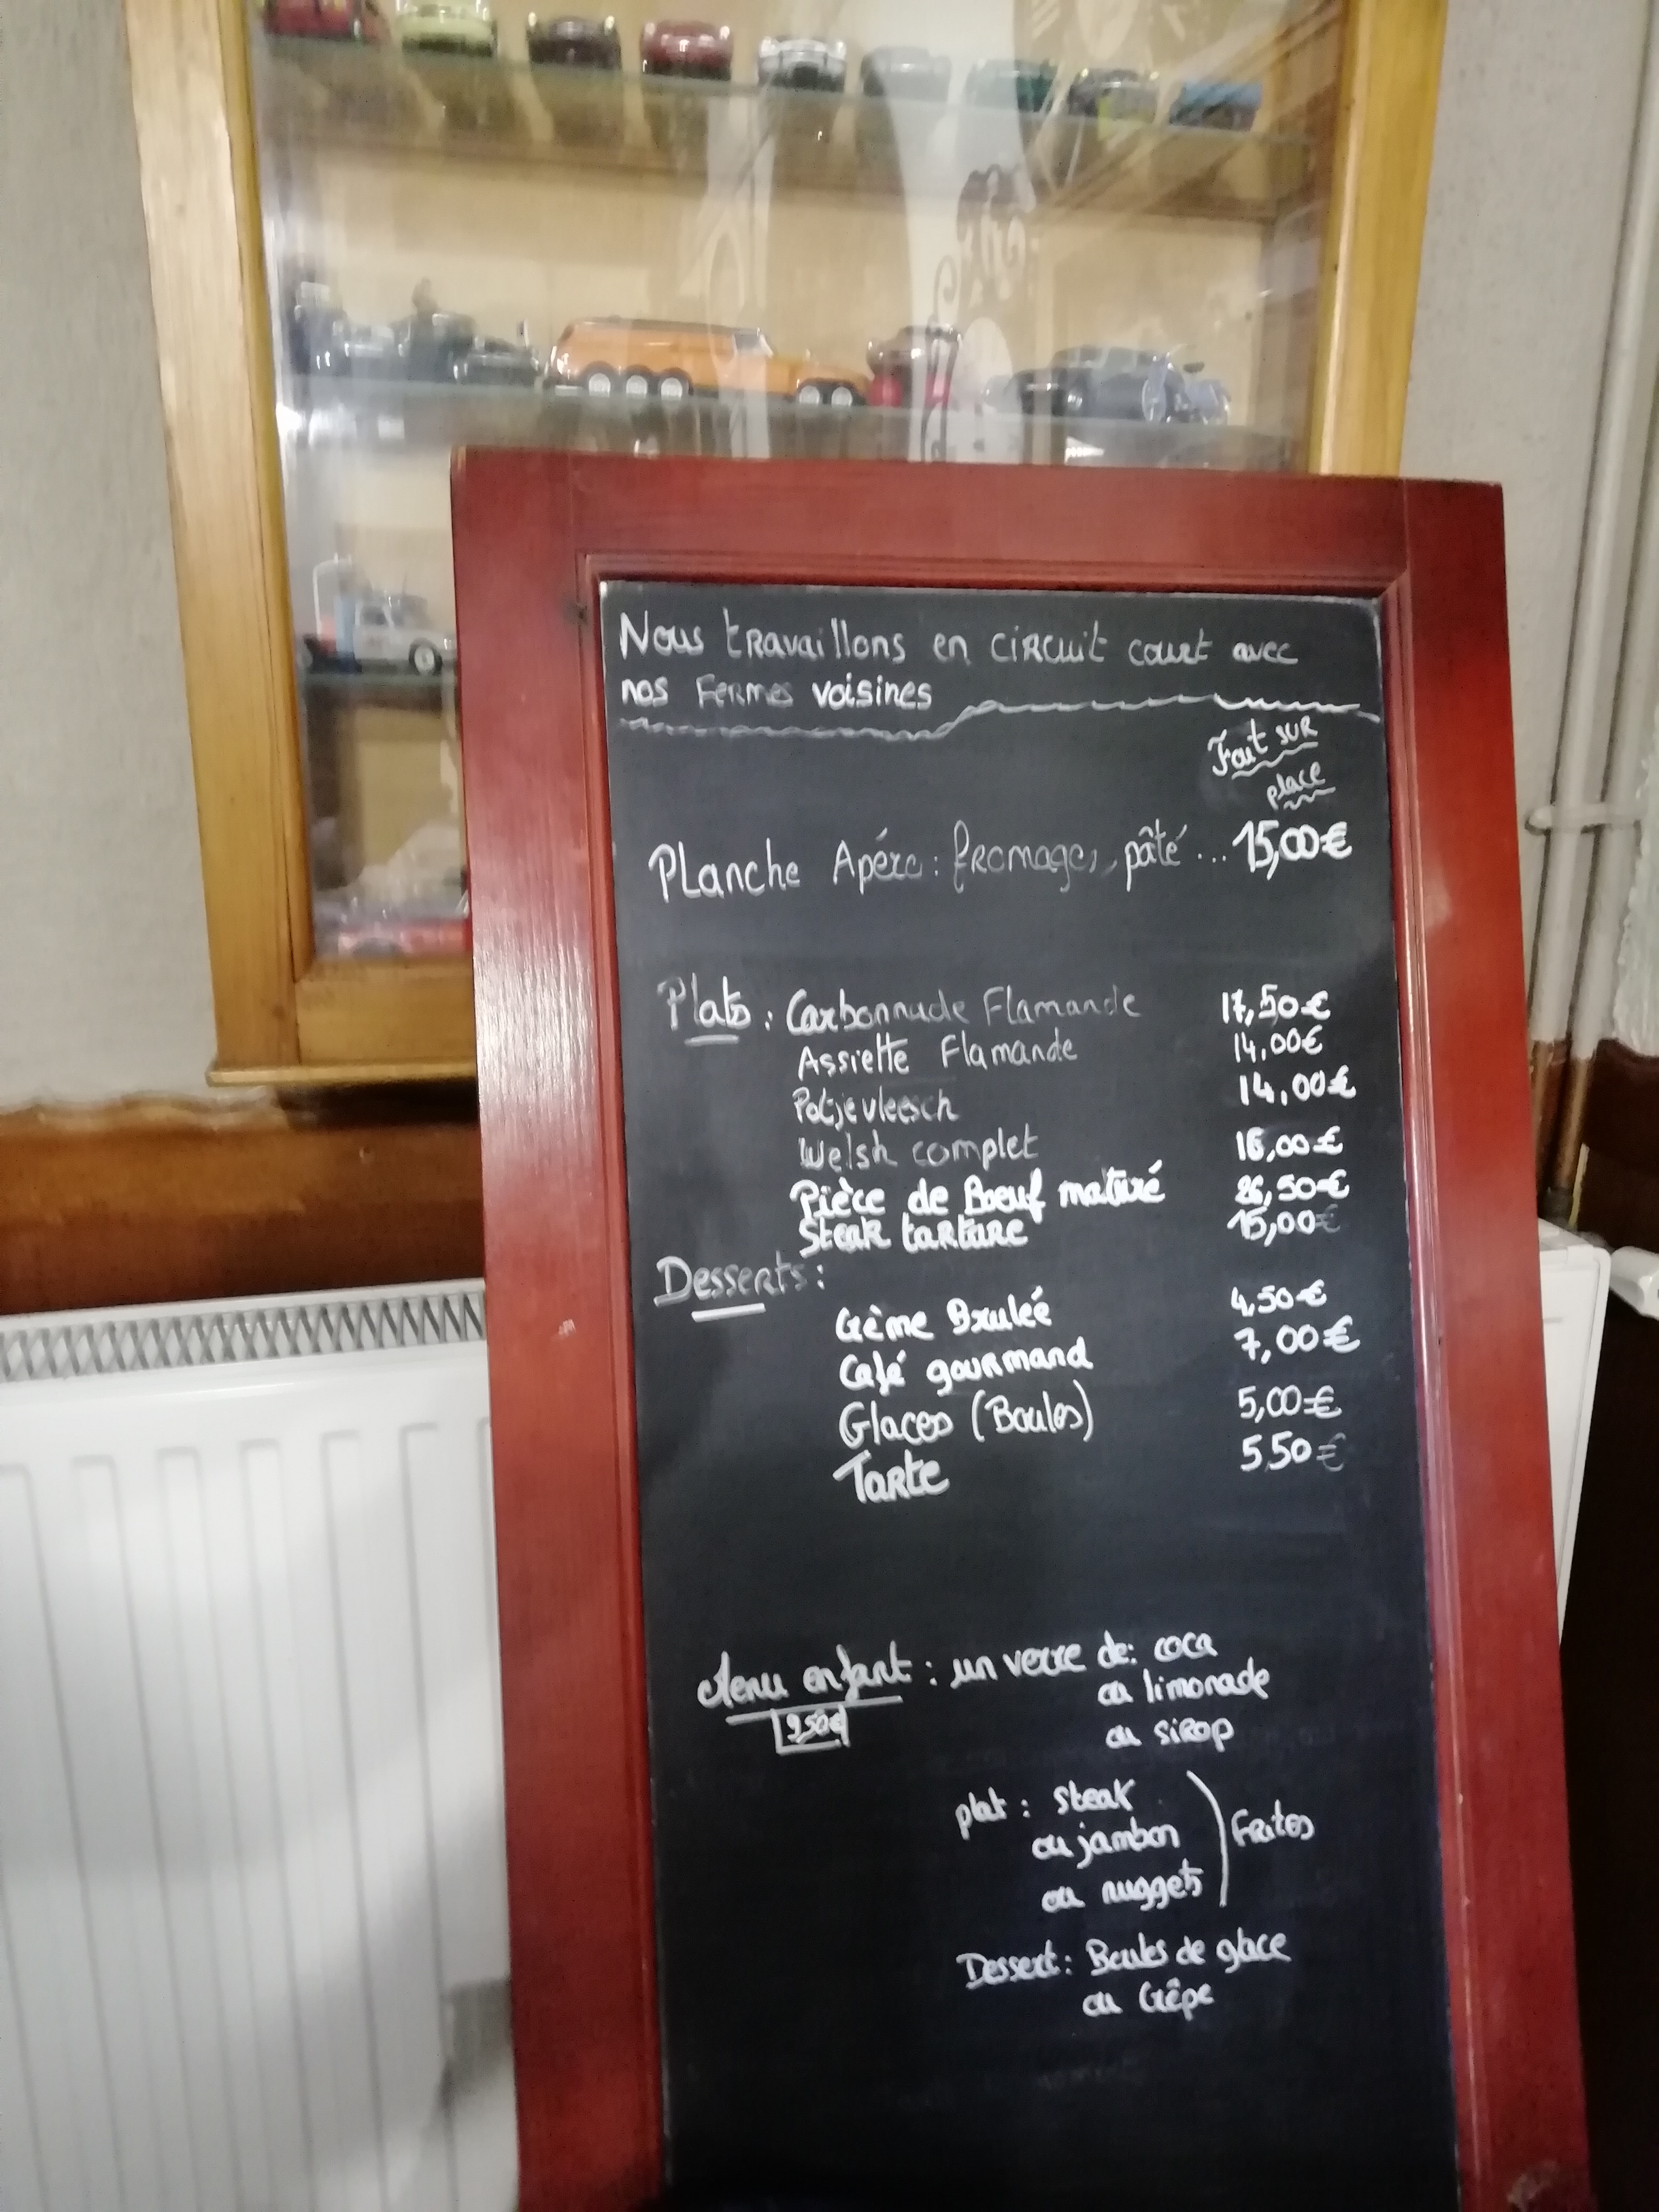 Nous travaillons en circuit court avec
nos Fermes voisines
Fait sur
place
Planche Apéro : fromages, pâté ... 15,00€
Plats : Carbonnade Flamande 17,50€
Assiette Flamande 14,00€
Potjevleesch 14,00€
Welsh complet 16,00€
Pièce de Boeuf maturé 26,50€
Steak tartare 15,00€
Desserts :
Crème Brulée 4,50€
Café gourmand 7,00€
Glaces (Boules) 5,00€
Tarte 5,50€
Menu enfant : un verre de : coca
ou limonade
9,50€
ou sirop
plat : steak
ou jambon
Frites
ou nuggets
Dessert : Boules de glace
ou Crêpe